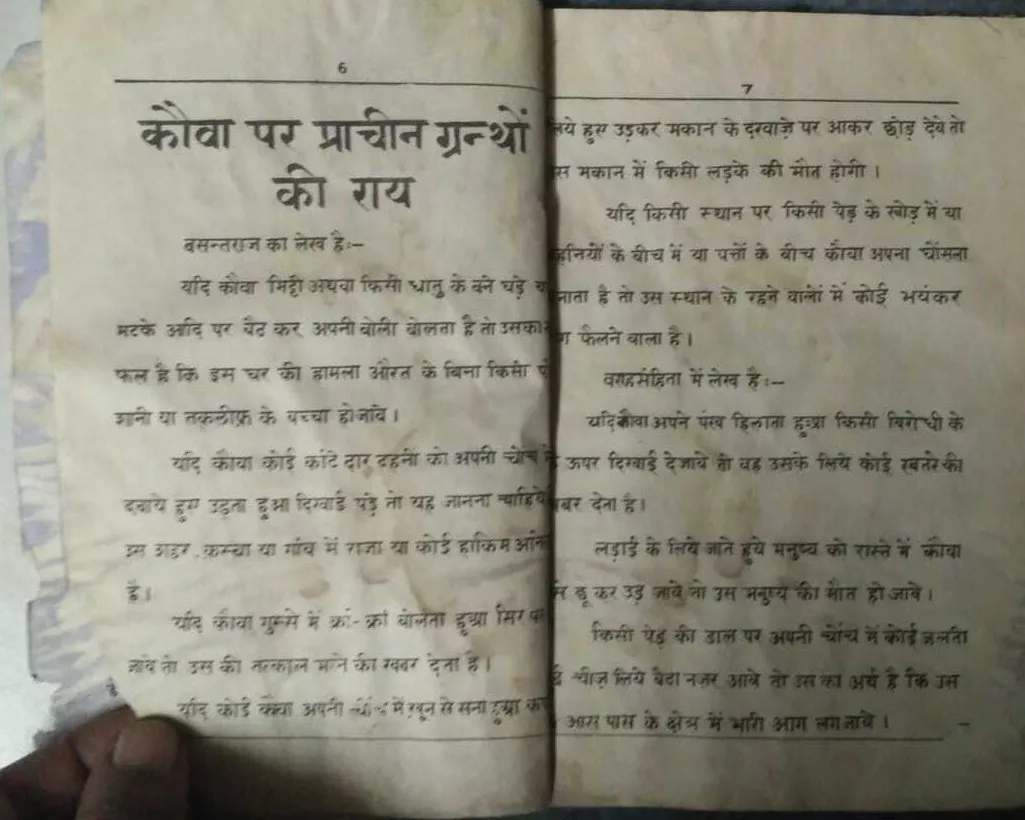 6
कौवा पर प्राचीन ग्रन्थों
की राय
बसन्तराज का लेख है:-
यदि कौवा मिट्टी अथवा किसी धातु के बने घड़े
मटके आदि पर बैठ कर अपनी बोली बोलता है तो उसका
फल है कि इस घर की हामला औरत के बिना किसी
शानी या तकलीफ़ के बच्चा होजावे।
यदि कौवा कोई कांटे दार टहनी को अपनी चोंच
दबाये हुए उड़ता हुआ दिखाई पड़े तो यह जानना चाहिये
इस शहर, क़स्बा या गांव में राजा या कोई हाकिम
है।
यदि कौवा गुस्से में क्रां-क्रां बोलता हुआ सिर पर
जावे तो उस की तत्काल मरने की खबर देता है।
यदि कोई कौवा अपनी चोंच में ख़ून से सना हुआ
7
लिये हुए उड़कर मकान के दरवाज़े पर आकर छोड़ देवे तो
मकान में किसी लड़के की मौत होगी।
यदि किसी स्थान पर किसी पेड़ के खोड़ में या
टहनियों के बीच में या पत्तों के बीच कौवा अपना घोंसला
है तो उस स्थान के रहने वालों में कोई भयंकर
फैलने वाला है।
वराहसंहिता में लेख है:-
यदि कौवा अपने पंख हिलाता हुआ किसी विरोधी के
ऊपर दिखाई देजाये तो वह उसके लिये कोई खतरे की
खबर देता है।
लड़ाई के लिये जाते हुये मनुष्य को रास्ते में कौवा
छू कर उड़ जावे तो उस मनुष्य की मौत हो जावे।
किसी पेड़ की डाल पर अपनी चोंच में कोई जलती
चीज़ लिये बैठा नज़र आवे तो उस का अर्थ है कि उस
आस पास के क्षेत्र में भारी आग लग जावे।